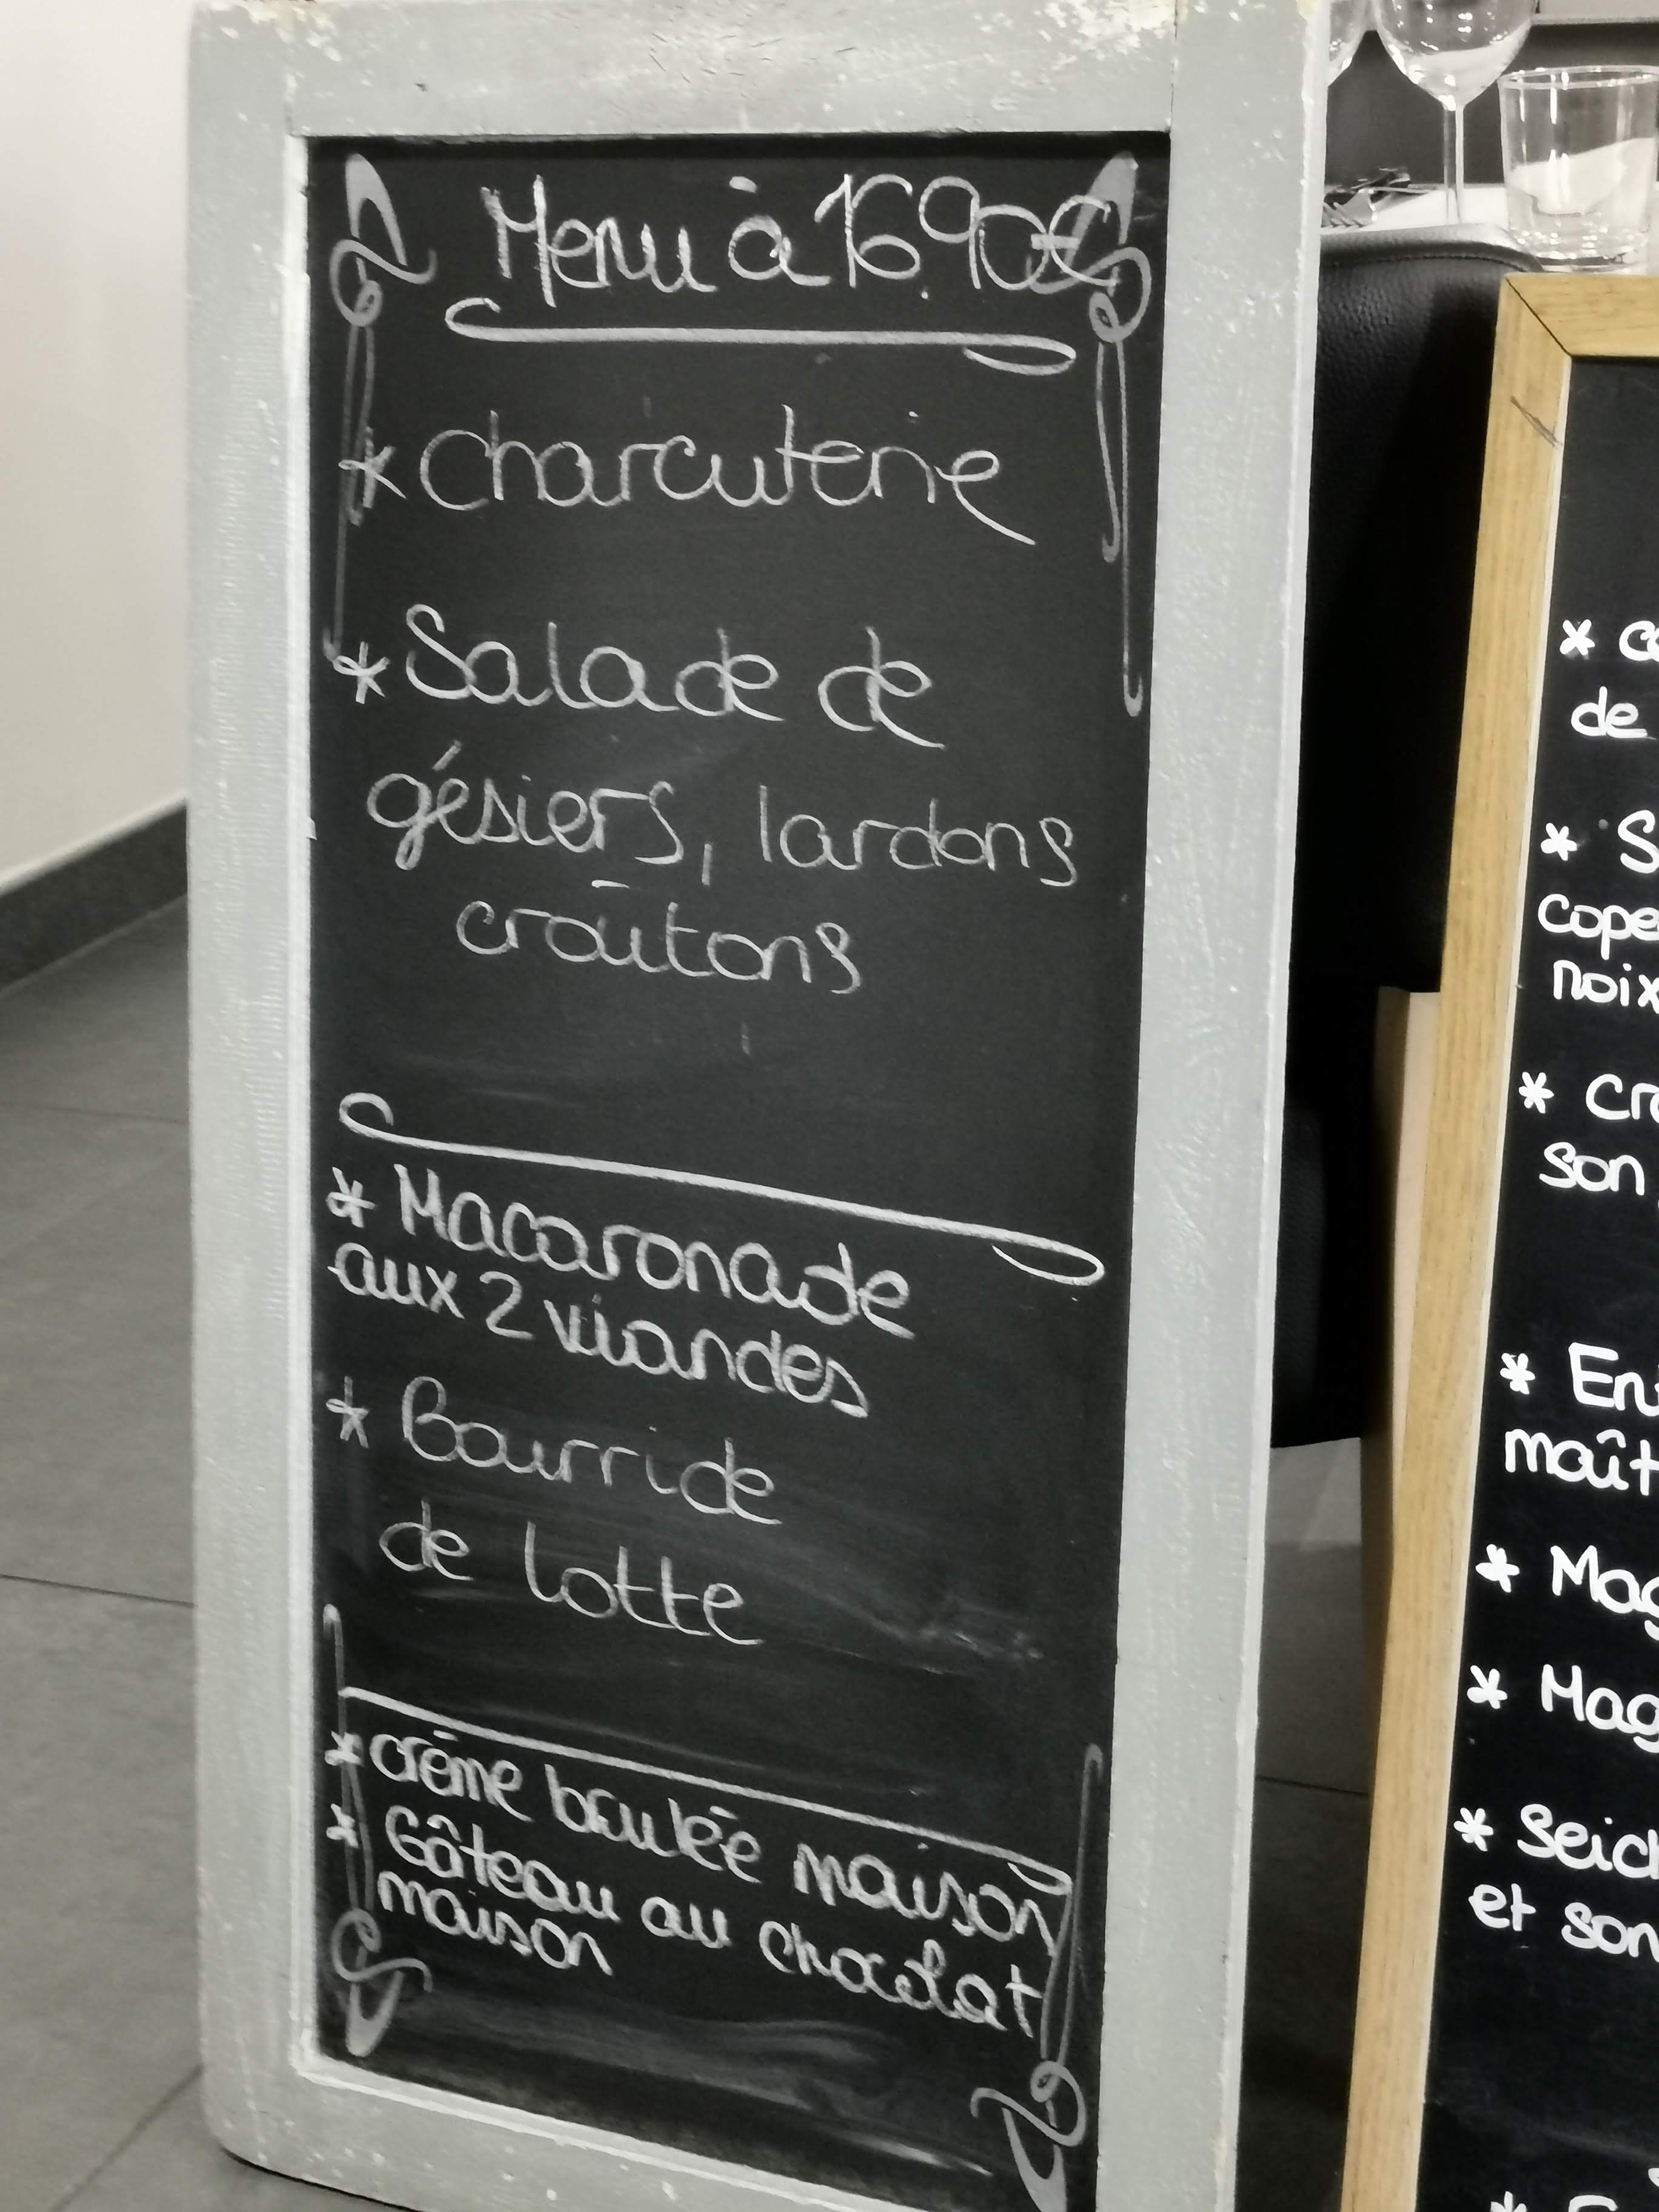 Menu à 16.90€
* Charcuterie
* Salade de
gésiers, lardons
croûtons
* Macaronade
aux 2 viandes
* Bourride
de lotte
* crème brulée maison
* Gâteau au chocolat
maison
* 
de
* S
cope
noix
* Cr
son
* En
maît
* Mag
* Mag
* Seich
et son